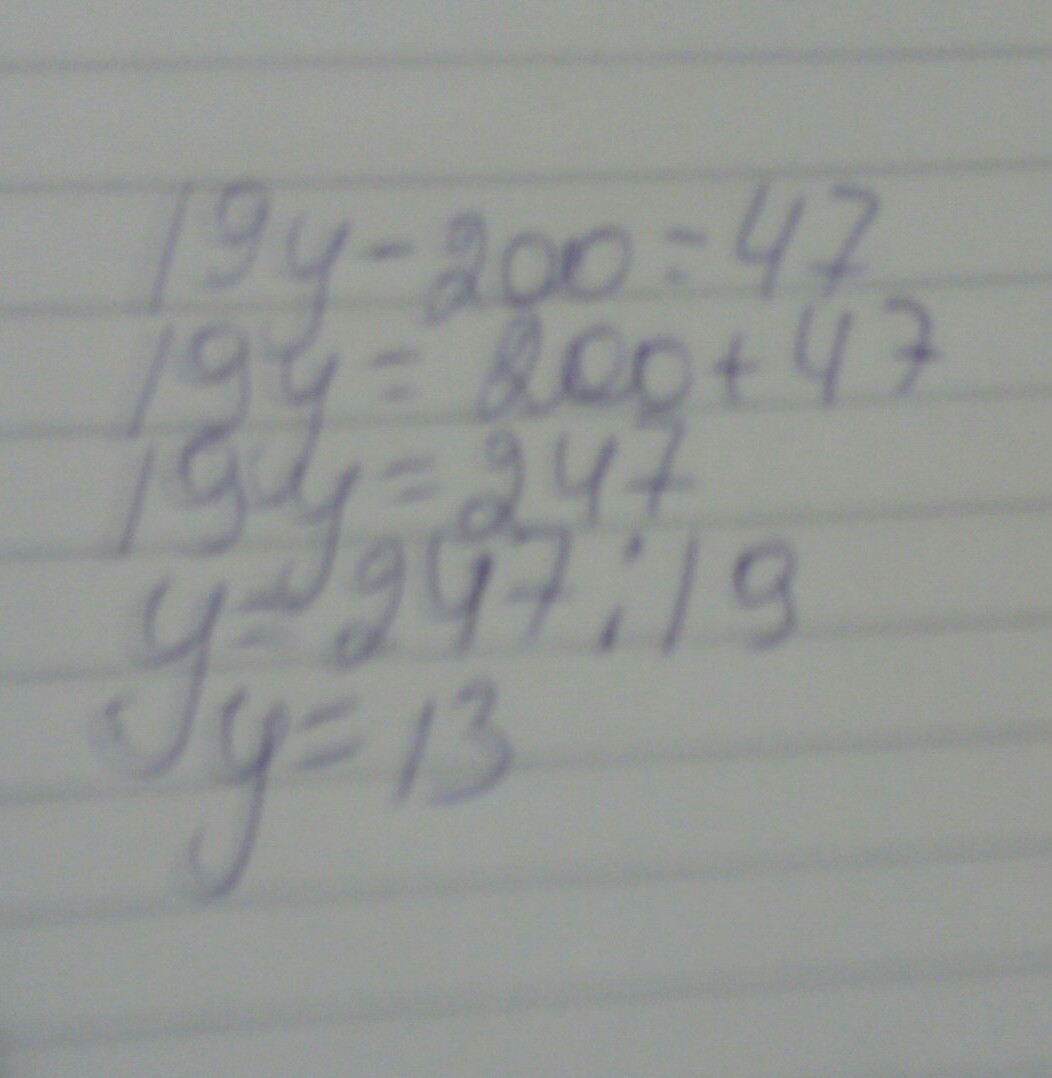 19y-200=47
19y=200+47
19y=247
y=247:19
y=13